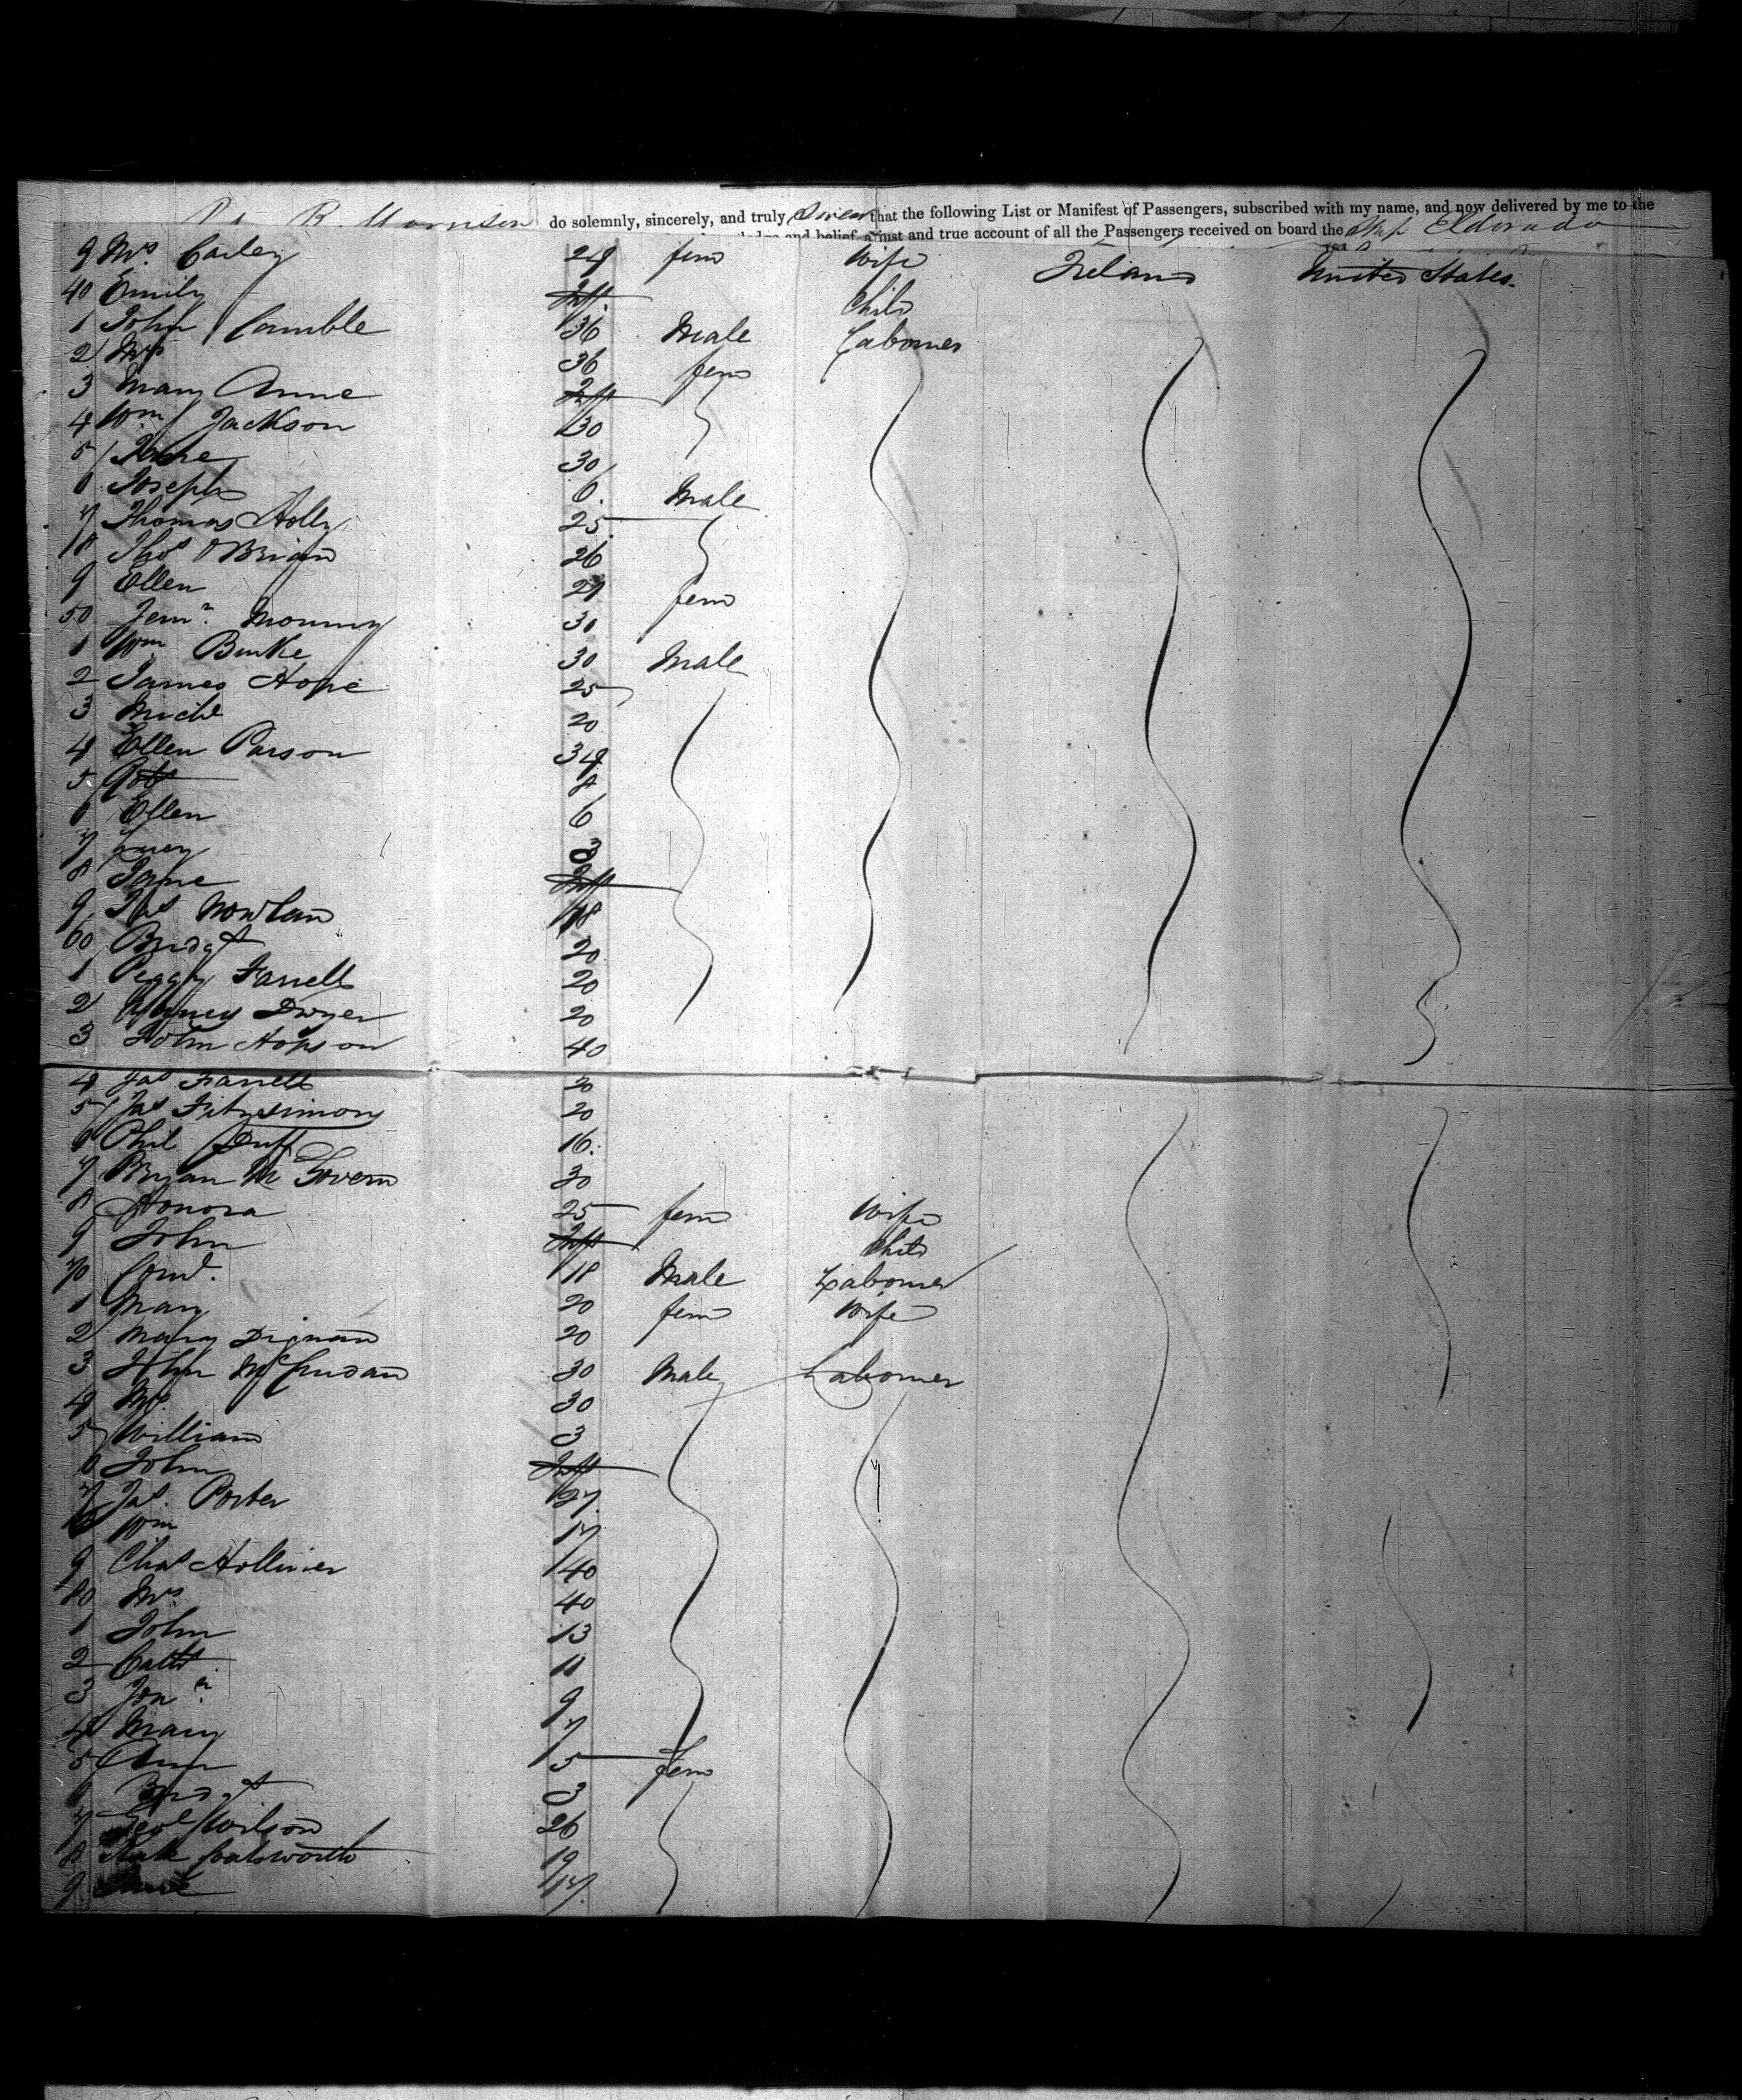 R. Morrison do solemnly, sincerely, and truly Swear that the following List or Manifest of Passengers, subscribed with my name, and now delivered by me to the
and belief, a just and true account of all the Passengers received on board the Ship Eldorado
9 Mrs. Carley 24 fem Wife Ireland United States.
40 Emily Inft. Child
1 John Camble 36 Male Labourer
2 Mrs 36 fem
3 Mary Anne Inft
4 Wm Jackson 30
5 30
6 Joseph 6. Male
7 Thomas Holly 25
8 Thos OBrian 26
9 Ellen 24 fem
50 30
1 Wm Burke 30 Male
2 James Hope 25
3 Michl 20
4 Ellen Parson 34
5 Robt 8
6 Ellen 6
7 Lucy 3
8 Jane Inft
9 Jas Nowlan 18
60 Bridgt 20
1 Peggy Farrell 20
2 Dwyer 20
3 John Hopson 40
4 Jas Farrell 20
5 Jas Fitzsimons 20
6 Phil Duff 16.
7 Bryan McGovern 30
8 Honora 25 fem Wife
9 John Inft Child
70 18 Male Labourer
1 Mary 20 fem Wife
2 Mary Dignan 20
3 John 30 Male Labourer
4 Mrs 30
5 William 3
6 John Inft
7 Jas. Porter 27.
8 Wm 17
9 Chas Holliver 40
80 Mrs. 40
1 John 13
2 Cath 11
3 9
4 Mary 7
5 Ann 5 fem
6 Bridgt 3
7 Geo Wilson 26
8 Coatsworth 19
9 17.